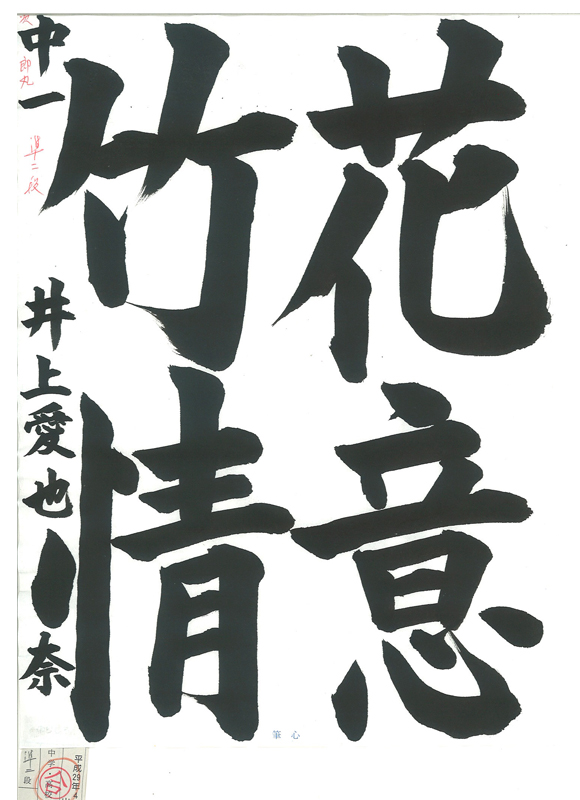 花意
竹情
中一 準二段 井上愛也奈
筆心
平成29年4
中学
準二段